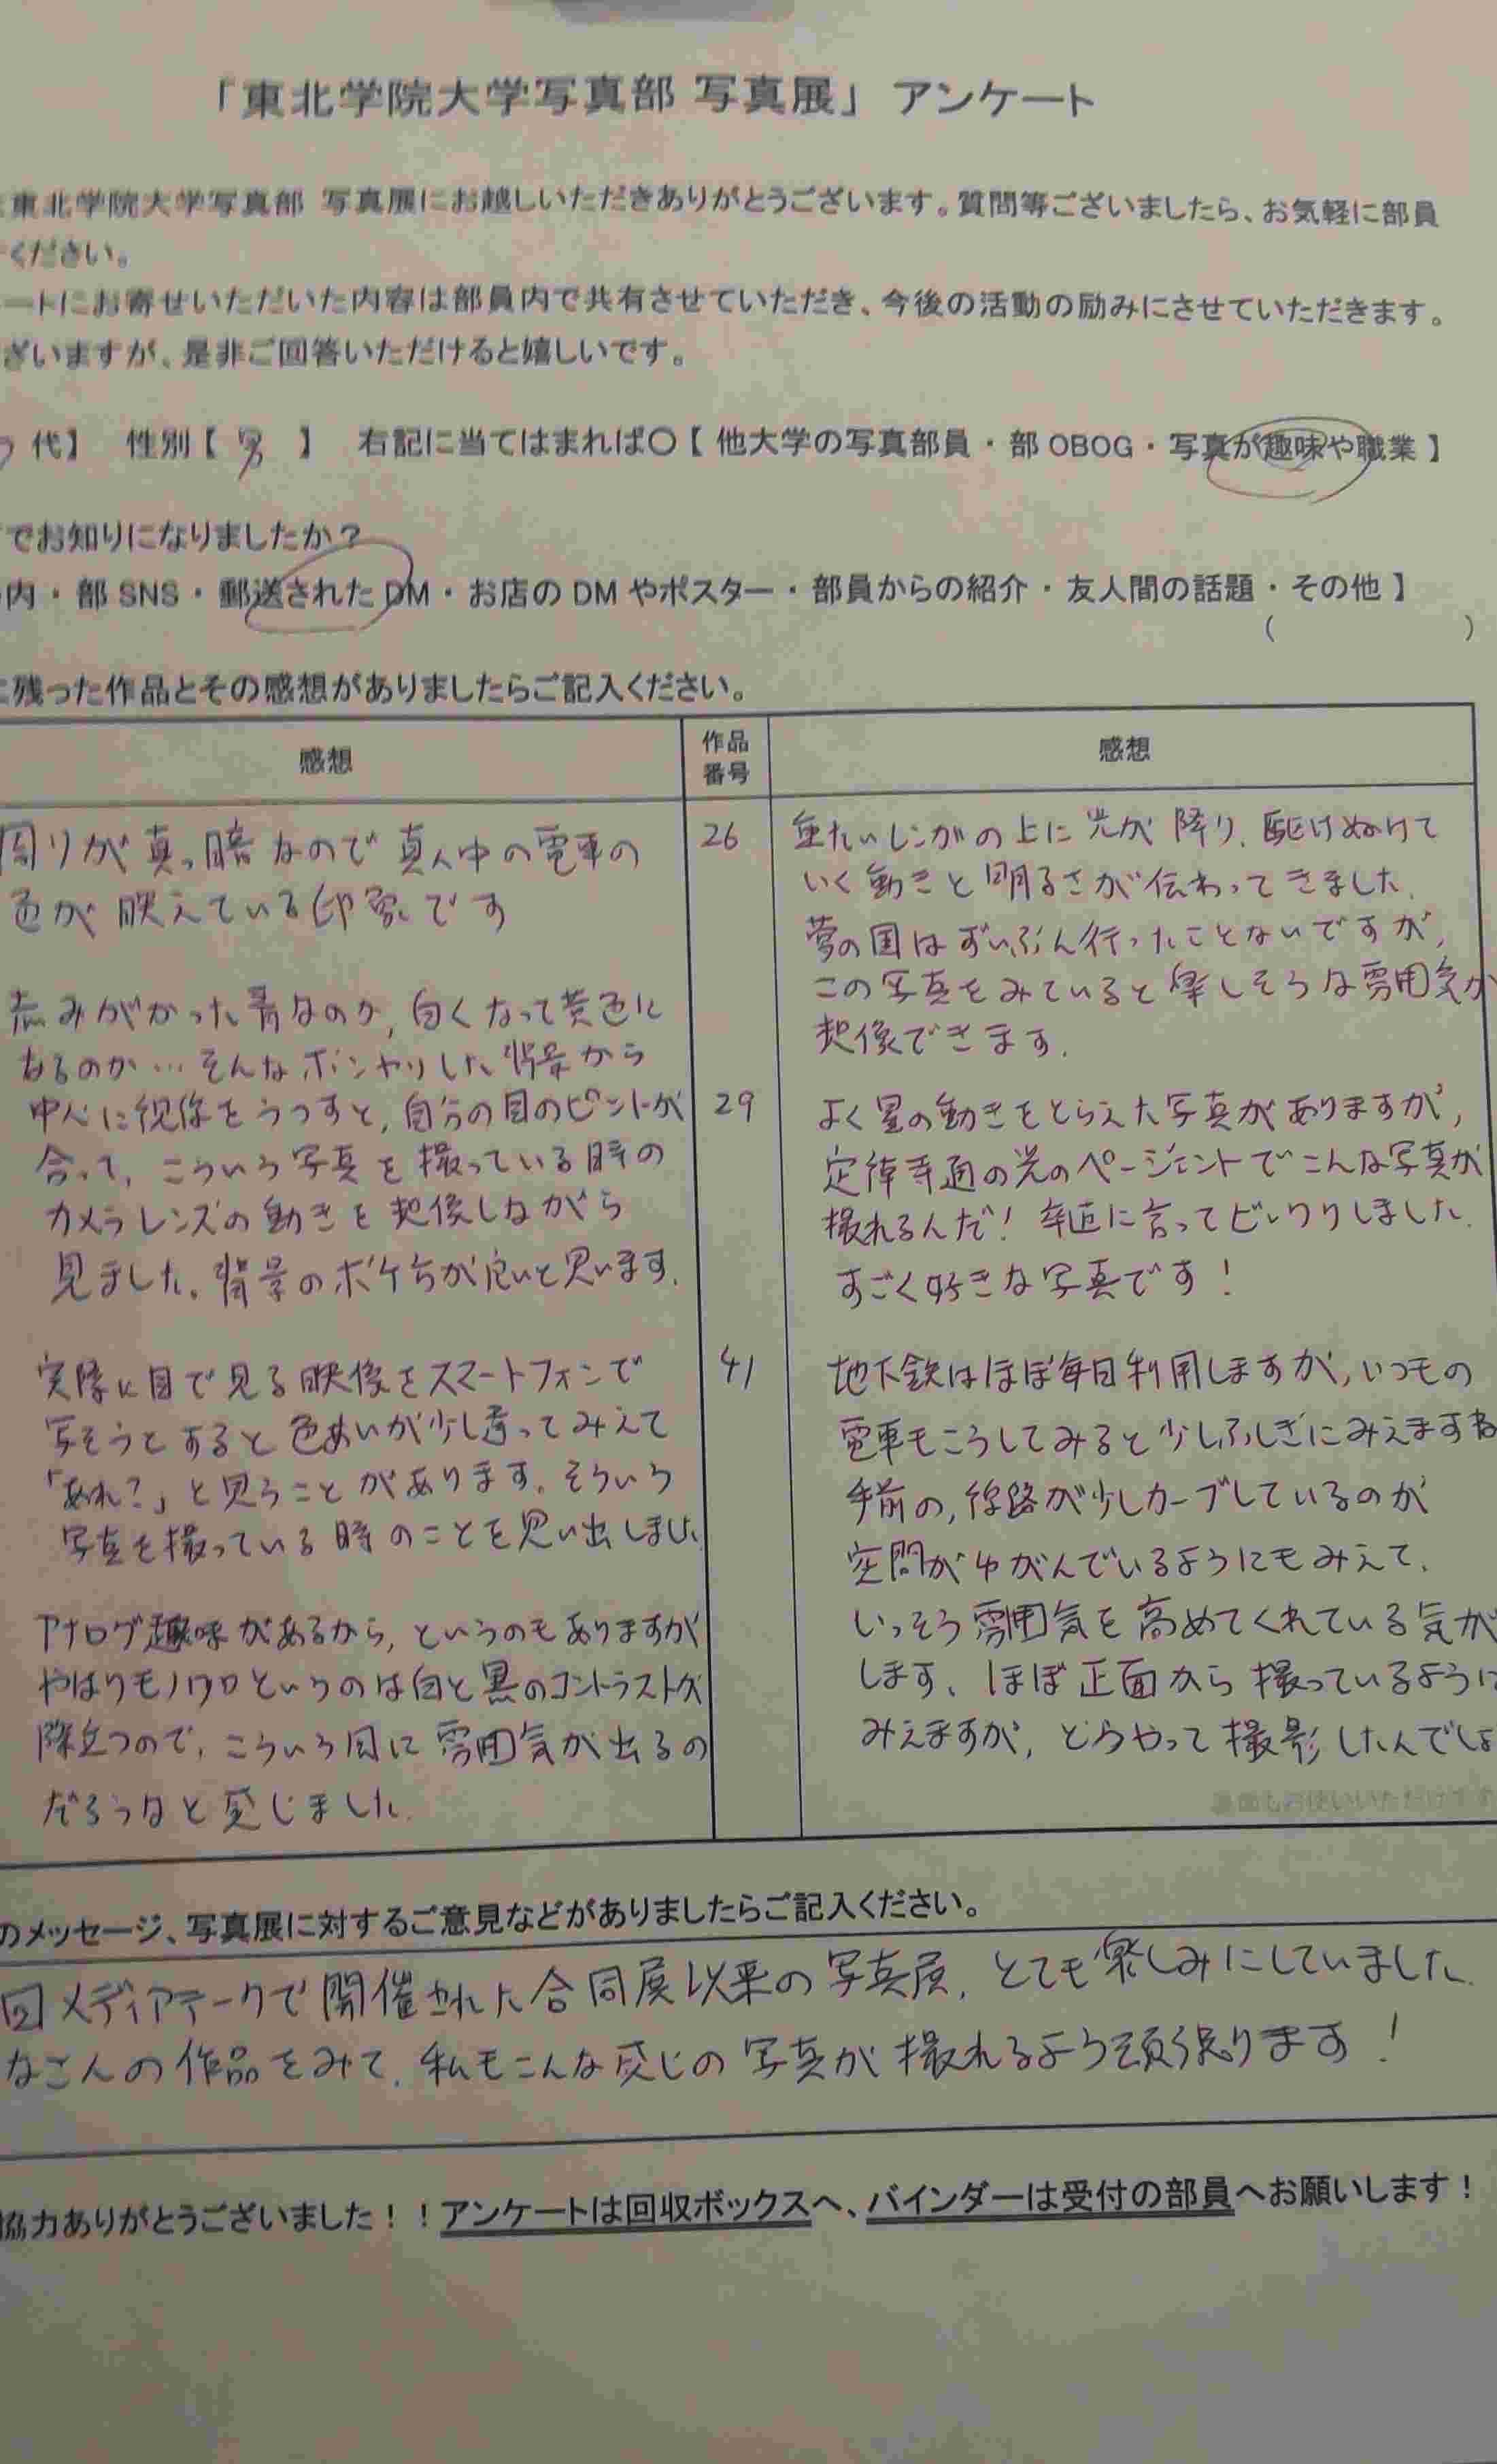 「東北学院大学写真部 写真展」 アンケート
東北学院大学写真部 写真展にお越しいただきありがとうございます。質問等ございましたら、お気軽に部員
ください。
ートにお寄せいただいた内容は部員内で共有させていただき、今後の活動の励みにさせていただきます。
ざいますが、是非ご回答いただけると嬉しいです。
代】 性別【 男 】 右記に当てはまれば〇【 他大学の写真部員・部 OBOG・写真が趣味や職業 】
でお知りになりましたか?
内・部 SNS・郵送された DM・お店の DM やポスター・部員からの紹介・友人間の話題・その他】
( )
に残った作品とその感想がありましたらご記入ください。
感想
周りが真っ暗なので真ん中の電車の
色が映えている印象です
赤みがかった青なのか, 白くなって黄色に
なるのか…そんなボンヤリした背景から
中心に視線をうつすと, 自分の目のピントが
合って, こういう写真を撮っている時の
カメラレンズの動きを想像しながら
見ました。背景のボケ方が良いと思います.
実際に目で見る映像をスマートフォンで
写そうとすると色あいが少し違ってみえて
「あれ?」と思うことがあります. そういう
写真を撮っている時のことを思い出しました
アナログ趣味があるから, というのもありますが
やはりモノクロというのは白と黒のコントラストが
際立つので, こういう風に雰囲気が出るの
だろうなと感じました.
作品
番号
感想
26 重たいレンガの上に光が降り, 駆けぬけて
いく動きと明るさが伝わってきました.
夢の国はずいぶん行ったことないですが,
この写真をみていると楽しそうな雰囲気が
想像できます.
29 よく星の動きをとらえた写真がありますが,
定禅寺通の光のページェントでこんな写真が
撮れるんだ! 率直に言ってビックリしました.
すごく好きな写真です!
41 地下鉄はほぼ毎日利用しますが, いつもの
電車もこうしてみると少しふしぎにみえますね
手前の, 線路が少しカーブしているのが
空間がゆがんでいるようにもみえて,
いっそう雰囲気を高めてくれている気が
します. ほぼ正面から撮っているように
みえますが, どうやって撮影したんでしょ
裏面もお使いいただけます
のメッセージ、写真展に対するご意見などがありましたらご記入ください。
回メディアテークで開催された合同展以来の写真展, とても楽しみにしていました.
なさんの作品をみて, 私もこんな感じの写真が撮れるよう頑張ります!
協力ありがとうございました!!アンケートは回収ボックスへ、バインダーは受付の部員へお願いします!